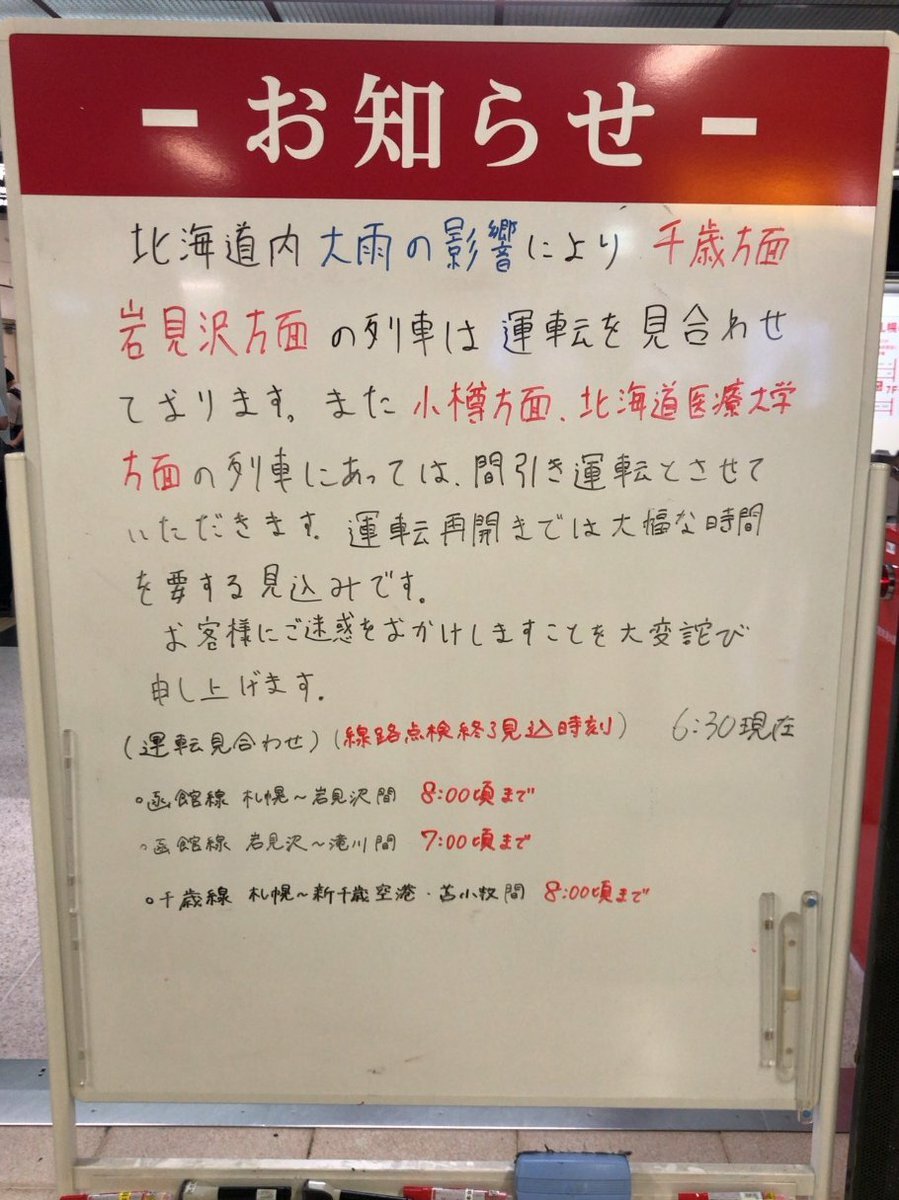 - お知らせ -
北海道内大雨の影響により 千歳方面
岩見沢方面の列車は運転を見合わせ
ております。また小樽方面、北海道医療大学
方面の列車にあっては、間引き運転とさせて
いただきます。運転再開までは大幅な時間
を要する見込みです。
お客様にご迷惑をおかけしますことを大変詫び
申し上げます。
(運転見合わせ)(線路点検終了見込時刻) 6:30現在
○函館線 札幌~岩見沢間 8:00頃まで
○函館線 岩見沢~滝川間 7:00頃まで
○千歳線 札幌~新千歳空港・苫小牧間 8:00頃まで